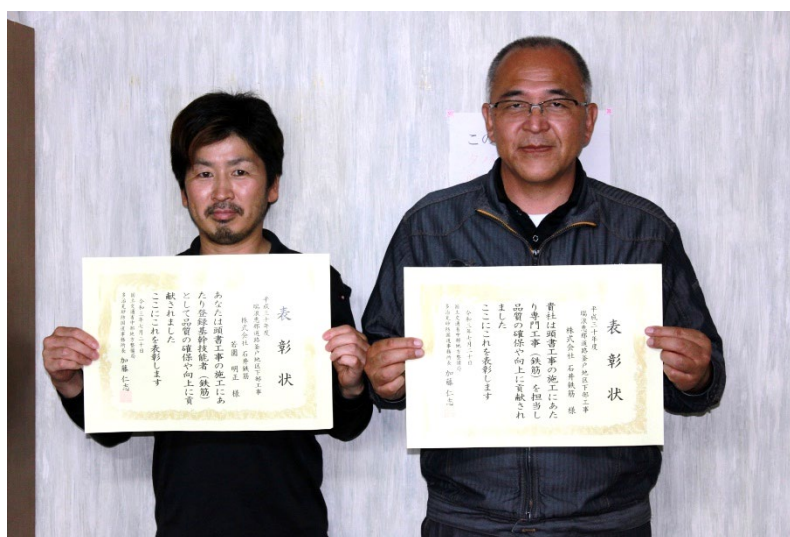 表彰状
平成三十年度
瑞浪恵那道路釜戸地区下部工事
株式会社 石井鉄筋
若園 明正 様
あなたは頭書工事の施工にあ
たり登録基幹技能者（鉄筋）
として品質の確保や向上に貢
献されました
ここにこれを表彰します
加藤 仁志
表彰状
平成三十年度
瑞浪恵那道路釜戸地区下部工事
株式会社 石井鉄筋 様
貴社は頭書工事の施工にあた
り専門工事（鉄筋）を担当し
品質の確保や向上に貢献され
ました
ここにこれを表彰します
加藤 仁志
この